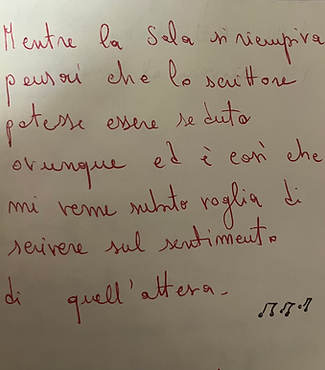 Mentre la Sala si riempiva
pensai che lo scrittore
potesse essere seduto
ovunque ed è così che
mi venne subito voglia di
scrivere sul sentimento
di quell'attesa.